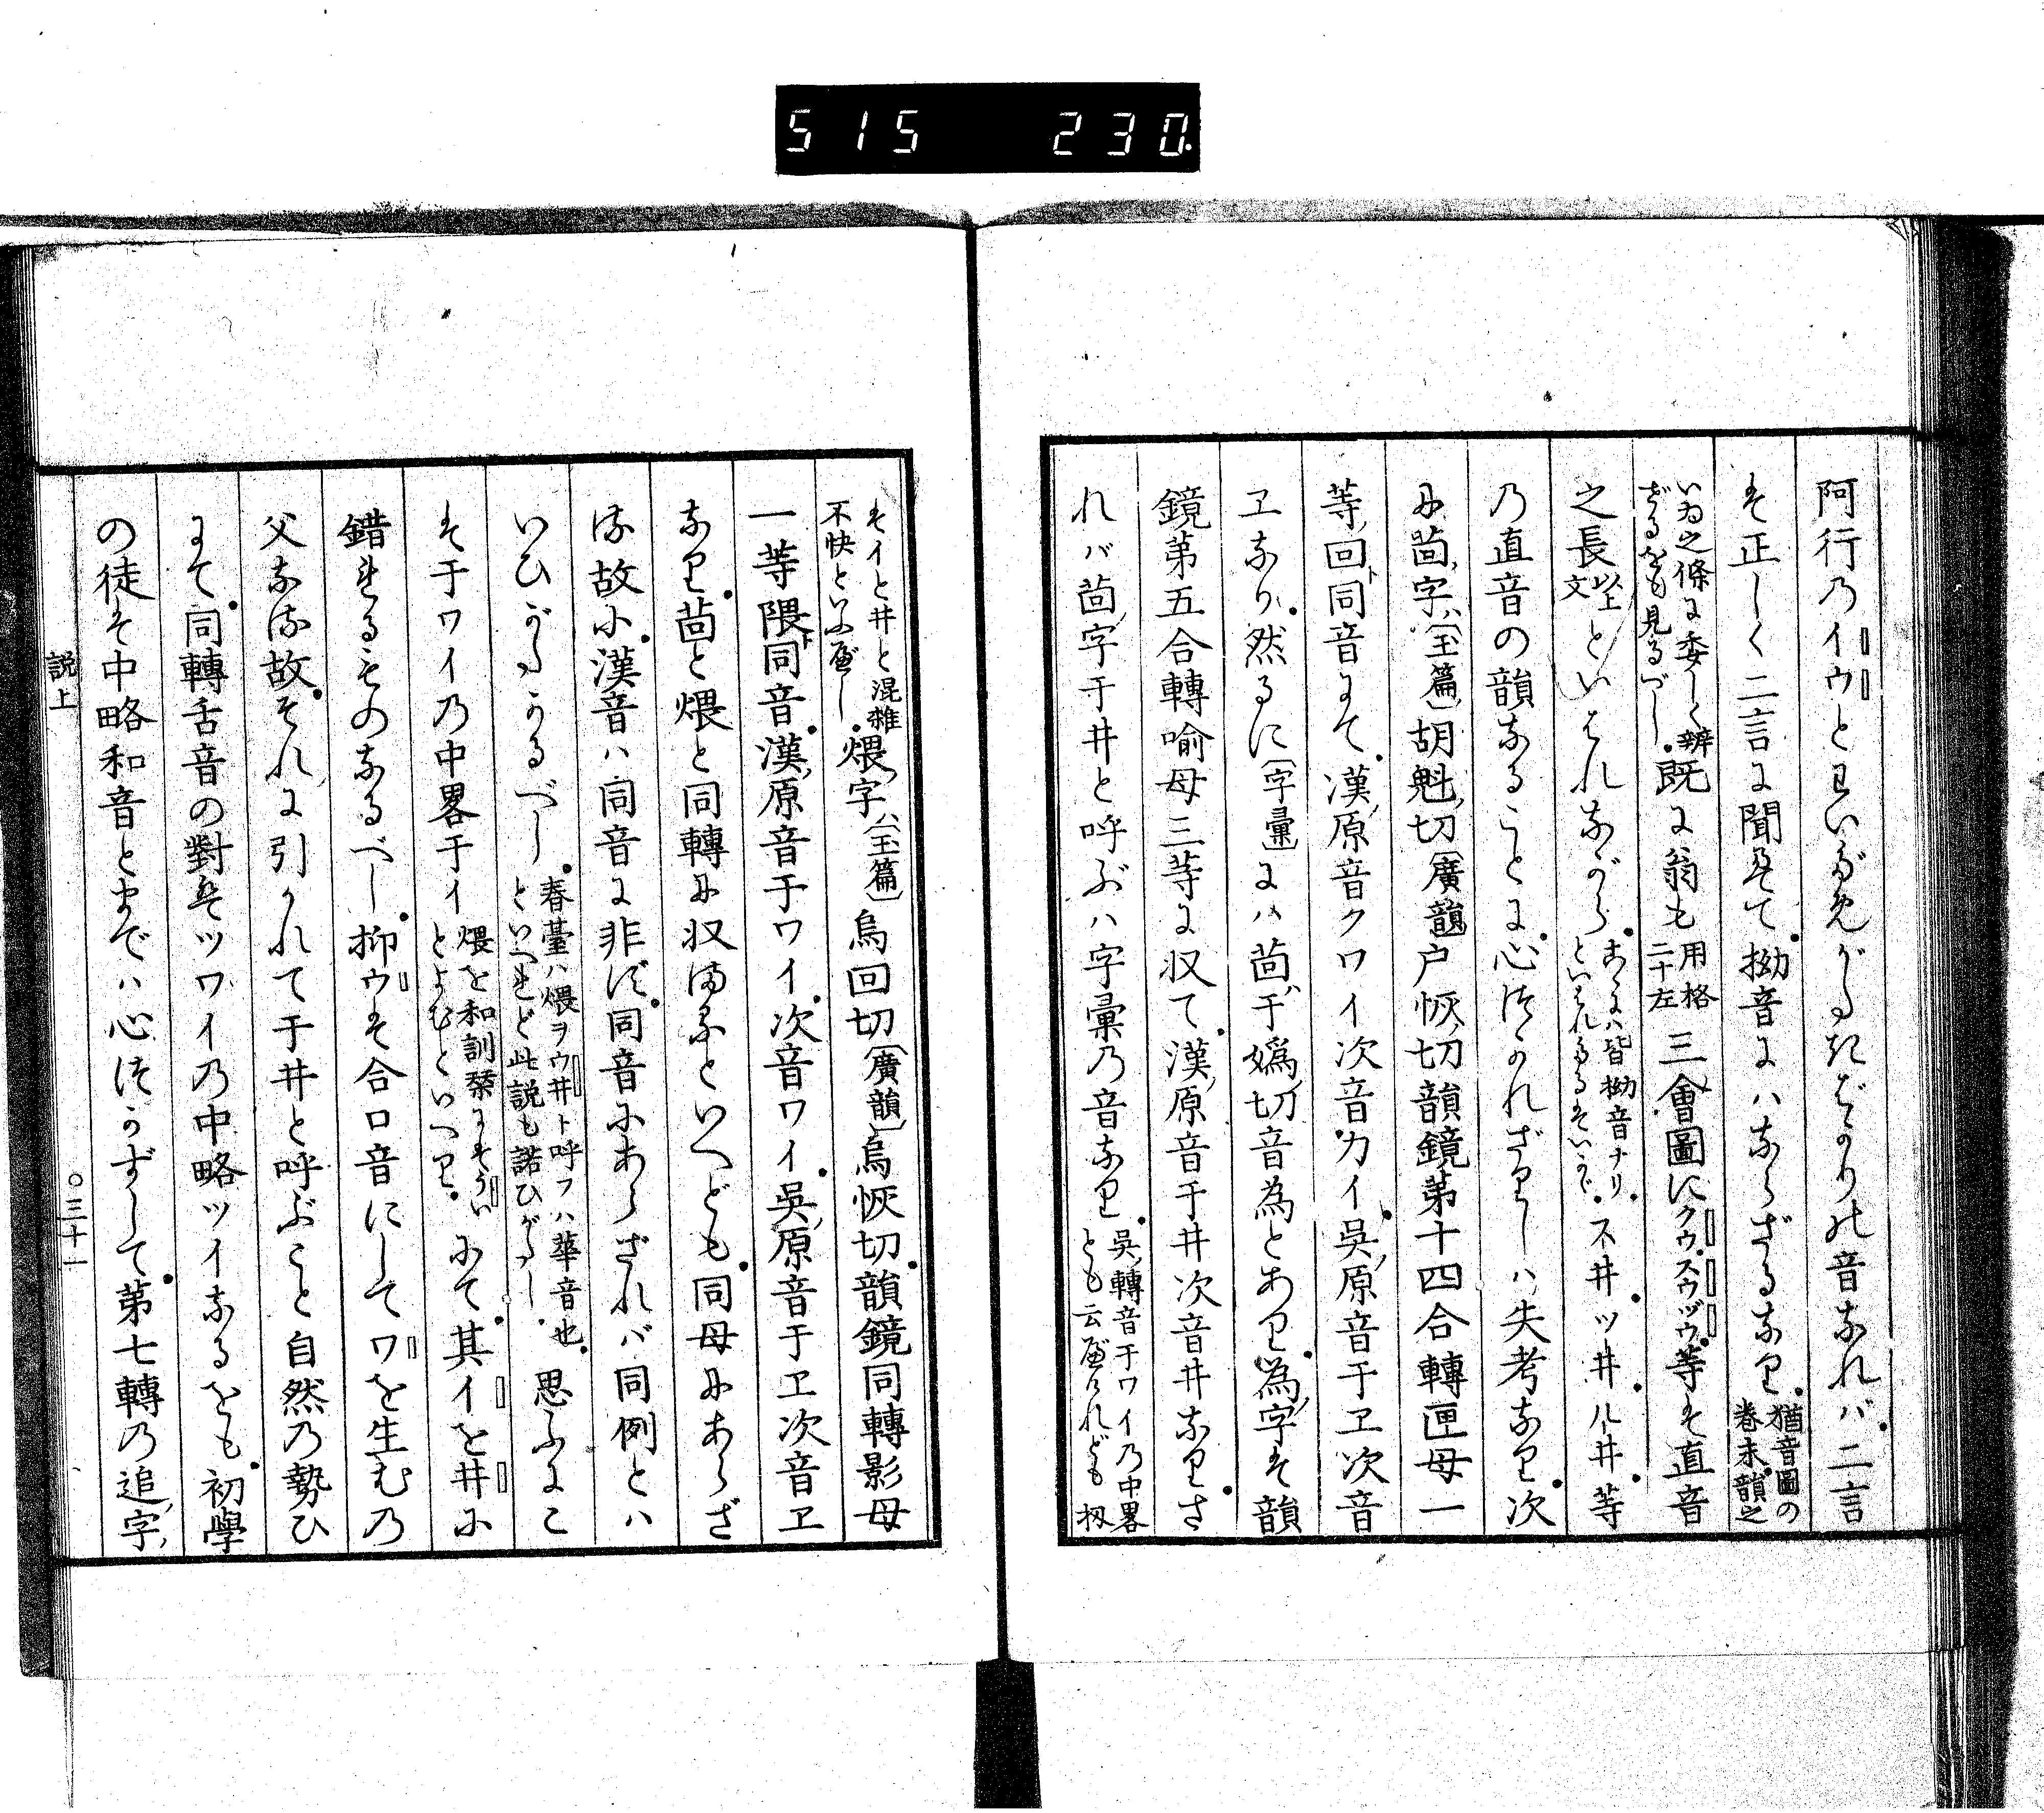 515 230.
阿行乃イウとわいだめがたきばかりの音なれバ二言
を正しく二言に聞えて拗音にハならざるなり猶音圖の巻末韻之
いゐ之條に委しく辨ざるをも見るべし既に翁も用格二十左三會圖にクウスウヅウ等を直音
之長以上文といはれながらあるハ皆拗音ナリといはれたるをいかでスヰツヰルヰ等
乃直音の韻なることに心つかれざりしハ失考なり次
に茴字ハ〔玉篇〕胡魁切〔廣韻〕戸恢切韻鏡第十四合轉匣母一
等回ト同音にて漢原音クワイ次音カイ呉原音于ヱ次音
ヱなり然るに〔字彙〕にハ茴ハ于嬀切音為とあり為字を韻
鏡第五合轉喻母三等に収て漢原音于ヰ次音ヰなりさ
れバ茴字于ヰと呼ぶハ字彙乃音なり呉轉音于ワイ乃中畧とも云べけれども扨
そイとヰと混雜不快といふべし煨字ハ〔玉篇〕烏回切〔廣韻〕烏恢切韻鏡同轉影母
一等隈ト同音漢原音于ワイ次音ワイ呉原音于ヱ次音ヱ
なり茴と煨と同轉に収まるといへども同母にあらざ
る故に漢音ハ同音に非ず同音にあらざれバ同例とハ
いひがたかるべし春臺ハ煨ヲウヰト呼フハ華音也といへれど此説も諾ひがたし思ふにこ
そ于ワイ乃中畧于イ煨を和訓栞にもうゐとよむといへりにて其イをヰに
錯れるものなるべし抑ウを合口音にしてワを生む乃
父なる故それに引かれて于ヰと呼ぶこと自然乃勢ひ
にて同轉舌音の對をツワイ乃中略ツイなるをも初學
の徒を中略和音とまでハ心つかずして第七轉乃追字
説上
○三十一